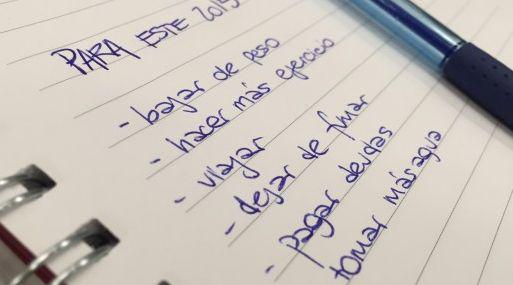 PARA ESTE 2015
- bajar de peso
- hacer más ejercicio
- viajar
- dejar de fumar
- pagar deudas
tomar más agua